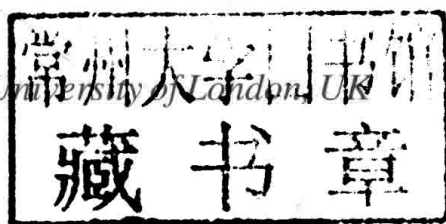 常州大学图书馆
University of London, UK
藏书章